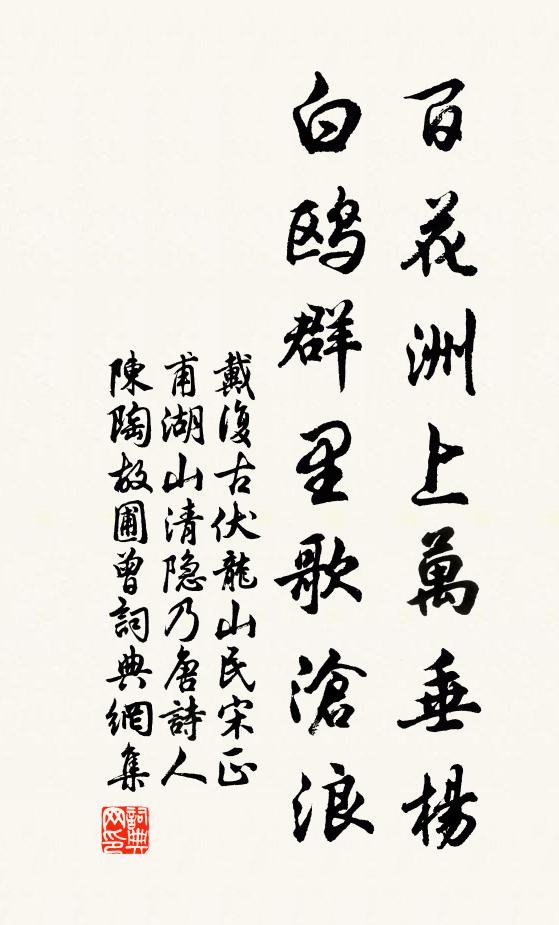 百花洲上萬垂楊
白鸥群里歌滄浪
戴復古伏龍山民宋正
甫湖山清隐乃唐詩人
陳陶故圃曾詞典網集
詞典网印